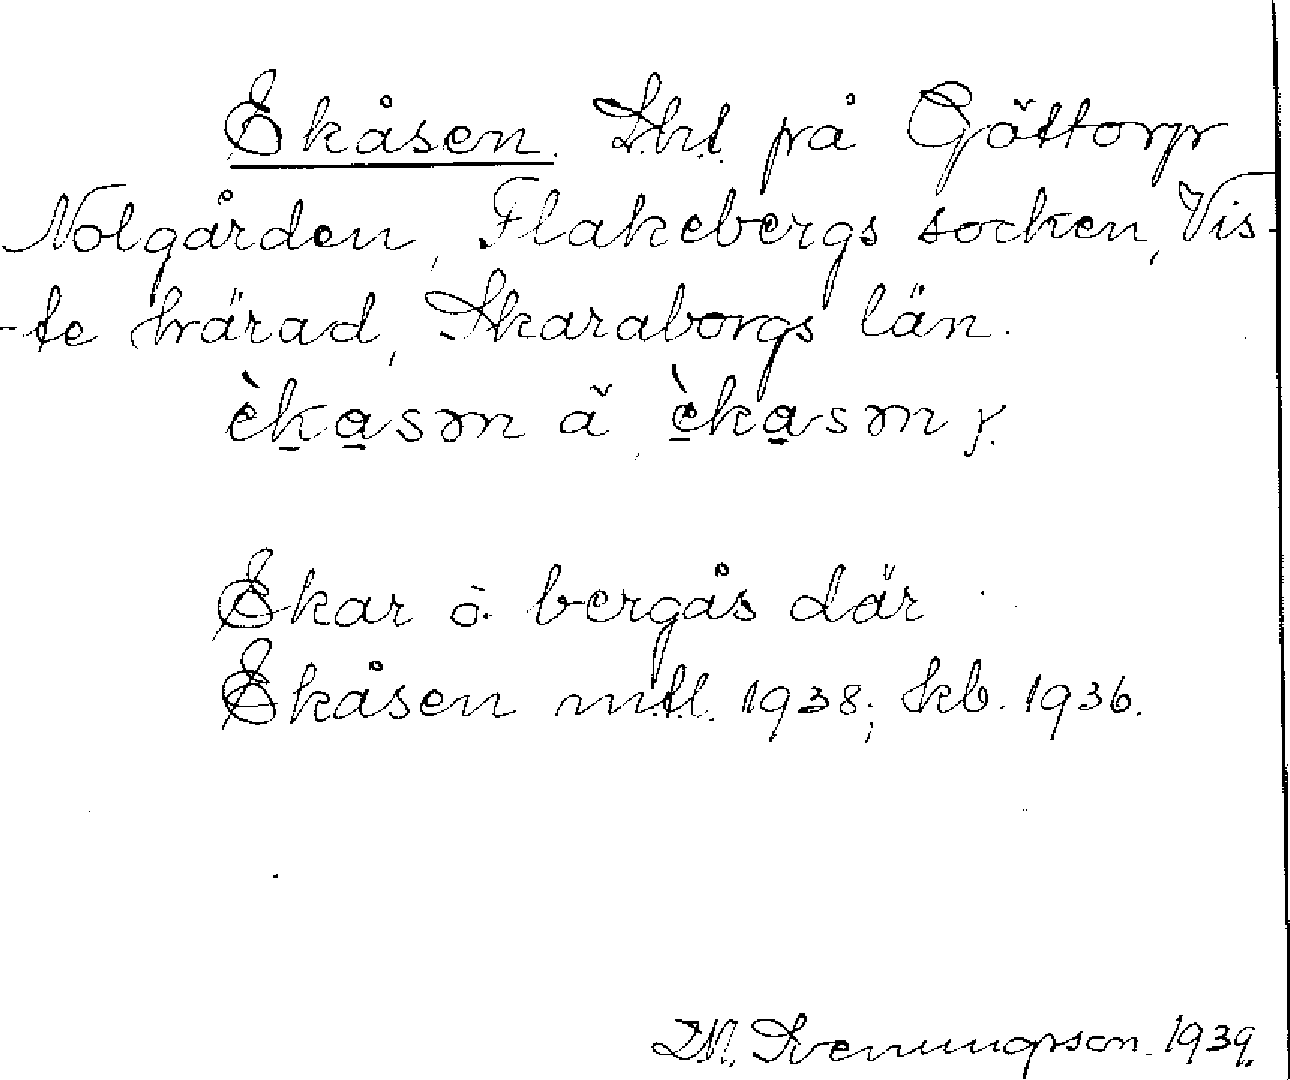 Ekåsen. Lht. på Göttorp
Nolgården, Flakebergs socken, Vis-
-te härad, Skaraborgs län.
èkasən ä, èkasən y.
Ekar o. bergås där
Ekåsen mtl. 1938; kb. 1936.
Svenungsson. 1939.